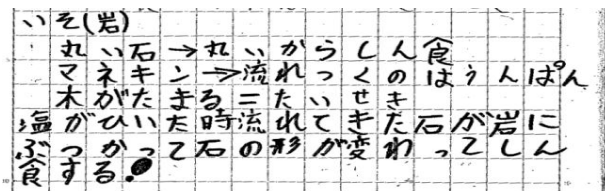 いそ(岩)
丸い石→丸いからしん食
マネキン→流れつくのはうんぱん
木がたまる=たいせき
塩がひいた時流れてきた石が岩に
ぶつかって石の形が変わってしん
食する.